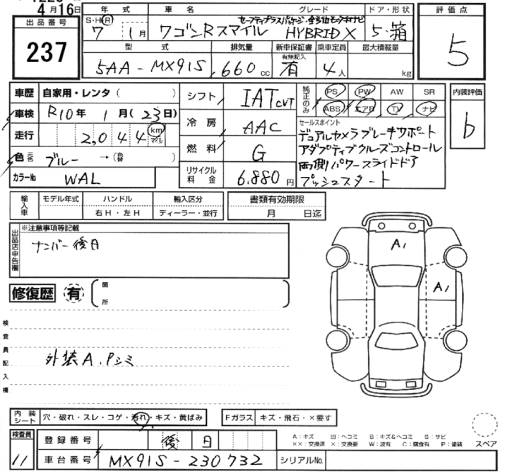 4月16日
出品番号
237
年式
車名
グレード
ドア・形状
評価点
S・H・R
7 1月
ワゴンRスマイル
HYBRID X
5・箱
5
型式
排気量
新車保証書
有無記入
乗車定員
最大積載量
5AA-MX91S
660cc
有
4人
kg
車歴 自家用・レンタ( )
シフト
IAT CVT
純正のみ
PS PW AW SR
ABS エアB TV ナビ
内装評価
b
車検 R10年1月(23日)
走行 2,044 km
冷房
AAC
セールスポイント
デュアルカメラブレーキサポート
アダプティブクルーズコントロール
両側パワースライドドア
プッシュスタート
色 ブルー→
燃料
G
カラーNo. WAL
リサイクル料金
6,880円
輸入車
モデル年式
ハンドル
右H・左H
輸入区分
ディーラー・並行
書類有効期限
月 日迄
※注意事項等記載
出品店申告欄
ナンバー後日
修復歴 有
箇所
検査員記入欄
外装A、Pシミ
A1
A1
内装シート
穴・破れ・スレ・コゲ・汚れ・キズ・黄ばみ
Fガラス
キズ・飛石・×要す
スペア
検査員
11
登録番号
後日
車台番号
MX91S-230732
シリアルNo.
A:キズ U:ヘコミ B:キズ&ヘコミ S:サビ
××:交換済 X:交換要 W:波有 C:腐食有 P:塗装